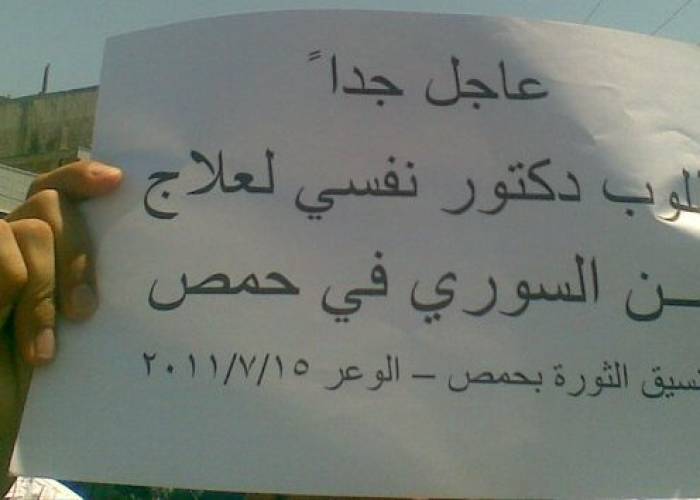 عاجل جداً
دكتور نفسي لعلاج
السوري في حمص
الثورة بحمص – الوعر ٢٠١١/٧/١٥